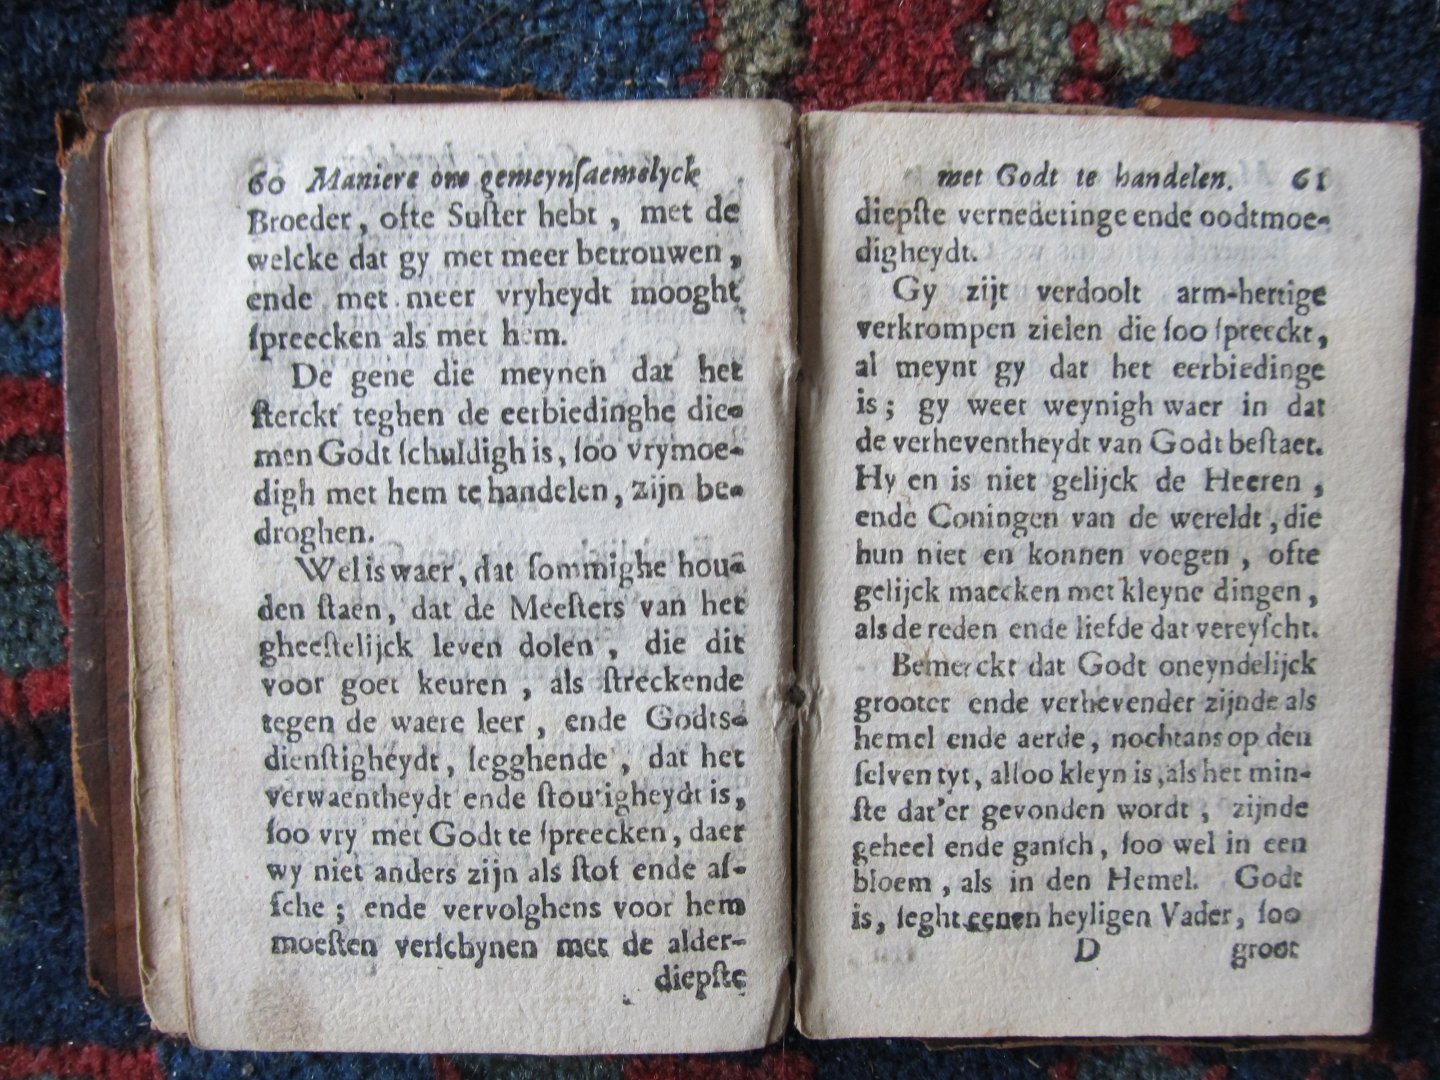 60 Maniere om gemeynſaemelyck
Broeder, ofte Suſter hebt, met de
welcke dat gy met meer betrouwen,
ende met meer vryheydt mooght
ſpreecken als met hem.
De gene die meynen dat het
ſterckt teghen de eerbiedinghe die-
men Godt ſchuldigh is, ſoo vrymoe-
digh met hem te handelen, zijn be-
droghen.
Wel is waer, dat ſommighe hou-
den ſtaen, dat de Meeſters van het
gheeſtelijck leven dolen, die dit
voor goet keuren, als ſtreckende
tegen de waere leer, ende Godts-
dienſtigheydt, ſegghende, dat het
verwaentheydt ende ſtoutigheydt is,
ſoo vry met Godt te ſpreecken, daer
wy niet anders zijn als ſtof ende aſ-
ſche; ende vervolghens voor hem
moeſten verſchynen met de alder-
diepſte
met Godt te handelen. 61
diepſte vernederinge ende oodtmoe-
digheydt.
Gy zijt verdoolt arm-hertige
verkrompen zielen die ſoo ſpreeckt,
al meynt gy dat het eerbiedinge
is; gy weet weynigh waer in dat
de verheventheydt van Godt beſtaet.
Hy en is niet gelijck de Heeren,
ende Coningen van de wereldt, die
hun niet en konnen voegen, ofte
gelijck maecken met kleyne dingen,
als de reden ende liefde dat vereyſcht.
Bemerckt dat Godt oneyndelijck
grooter ende verhevender zijnde als
hemel ende aerde, nochtans op den
ſelven tyt, alſoo kleyn is, als het min-
ſte dat'er gevonden wordt, zijnde
geheel ende ganſch, ſoo wel in een
bloem, als in den Hemel. Godt
is, ſeght eenen heyligen Vader, ſoo
D groot